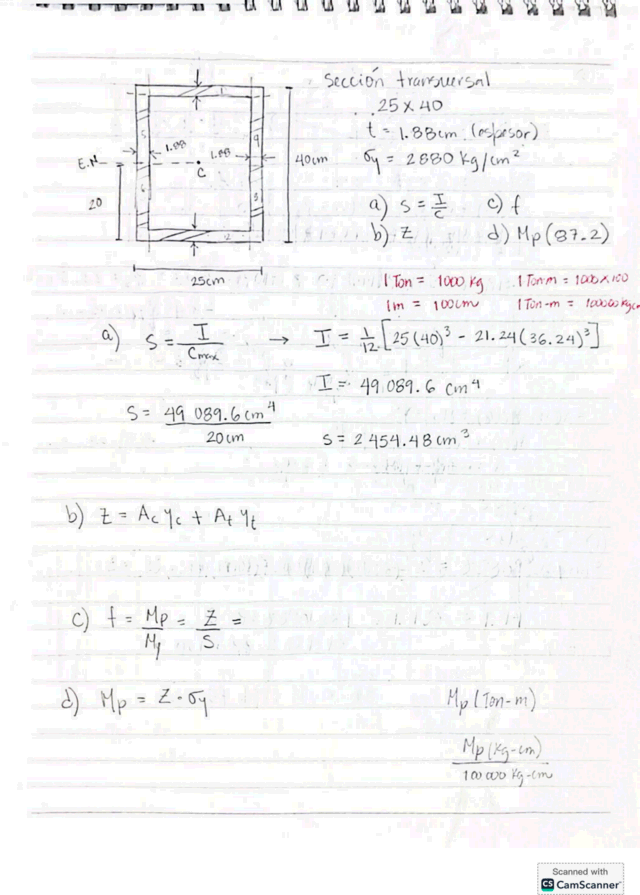 Sección transversal
25 x 40
t = 1.88cm (espesor)
σy = 2880 kg/cm²
a) s = I/c   c) f
b) Z   d) Mp (87.2)
1
5
9
1.88
1.88
E.N
C
40cm
20
6
3
2
25cm
1 Ton = 1000 kg   1 Ton·m = 1000 x 100
1m = 100cm   1 Ton-m = 100000 kgcm
a) s = I / Cmax → I = 1/12 [25(40)³ - 21.24(36.24)³]
I = 49 089.6 cm⁴
s = 49 089.6cm⁴ / 20cm   s = 2 454.48 cm³
b) Z = Ac yc + At yt
c) f = Mp/My = Z/S =
d) Mp = Z · σy   Mp (Ton-m)
Mp (kg-cm)
100 000 kg-cm
Scanned with
CS CamScanner